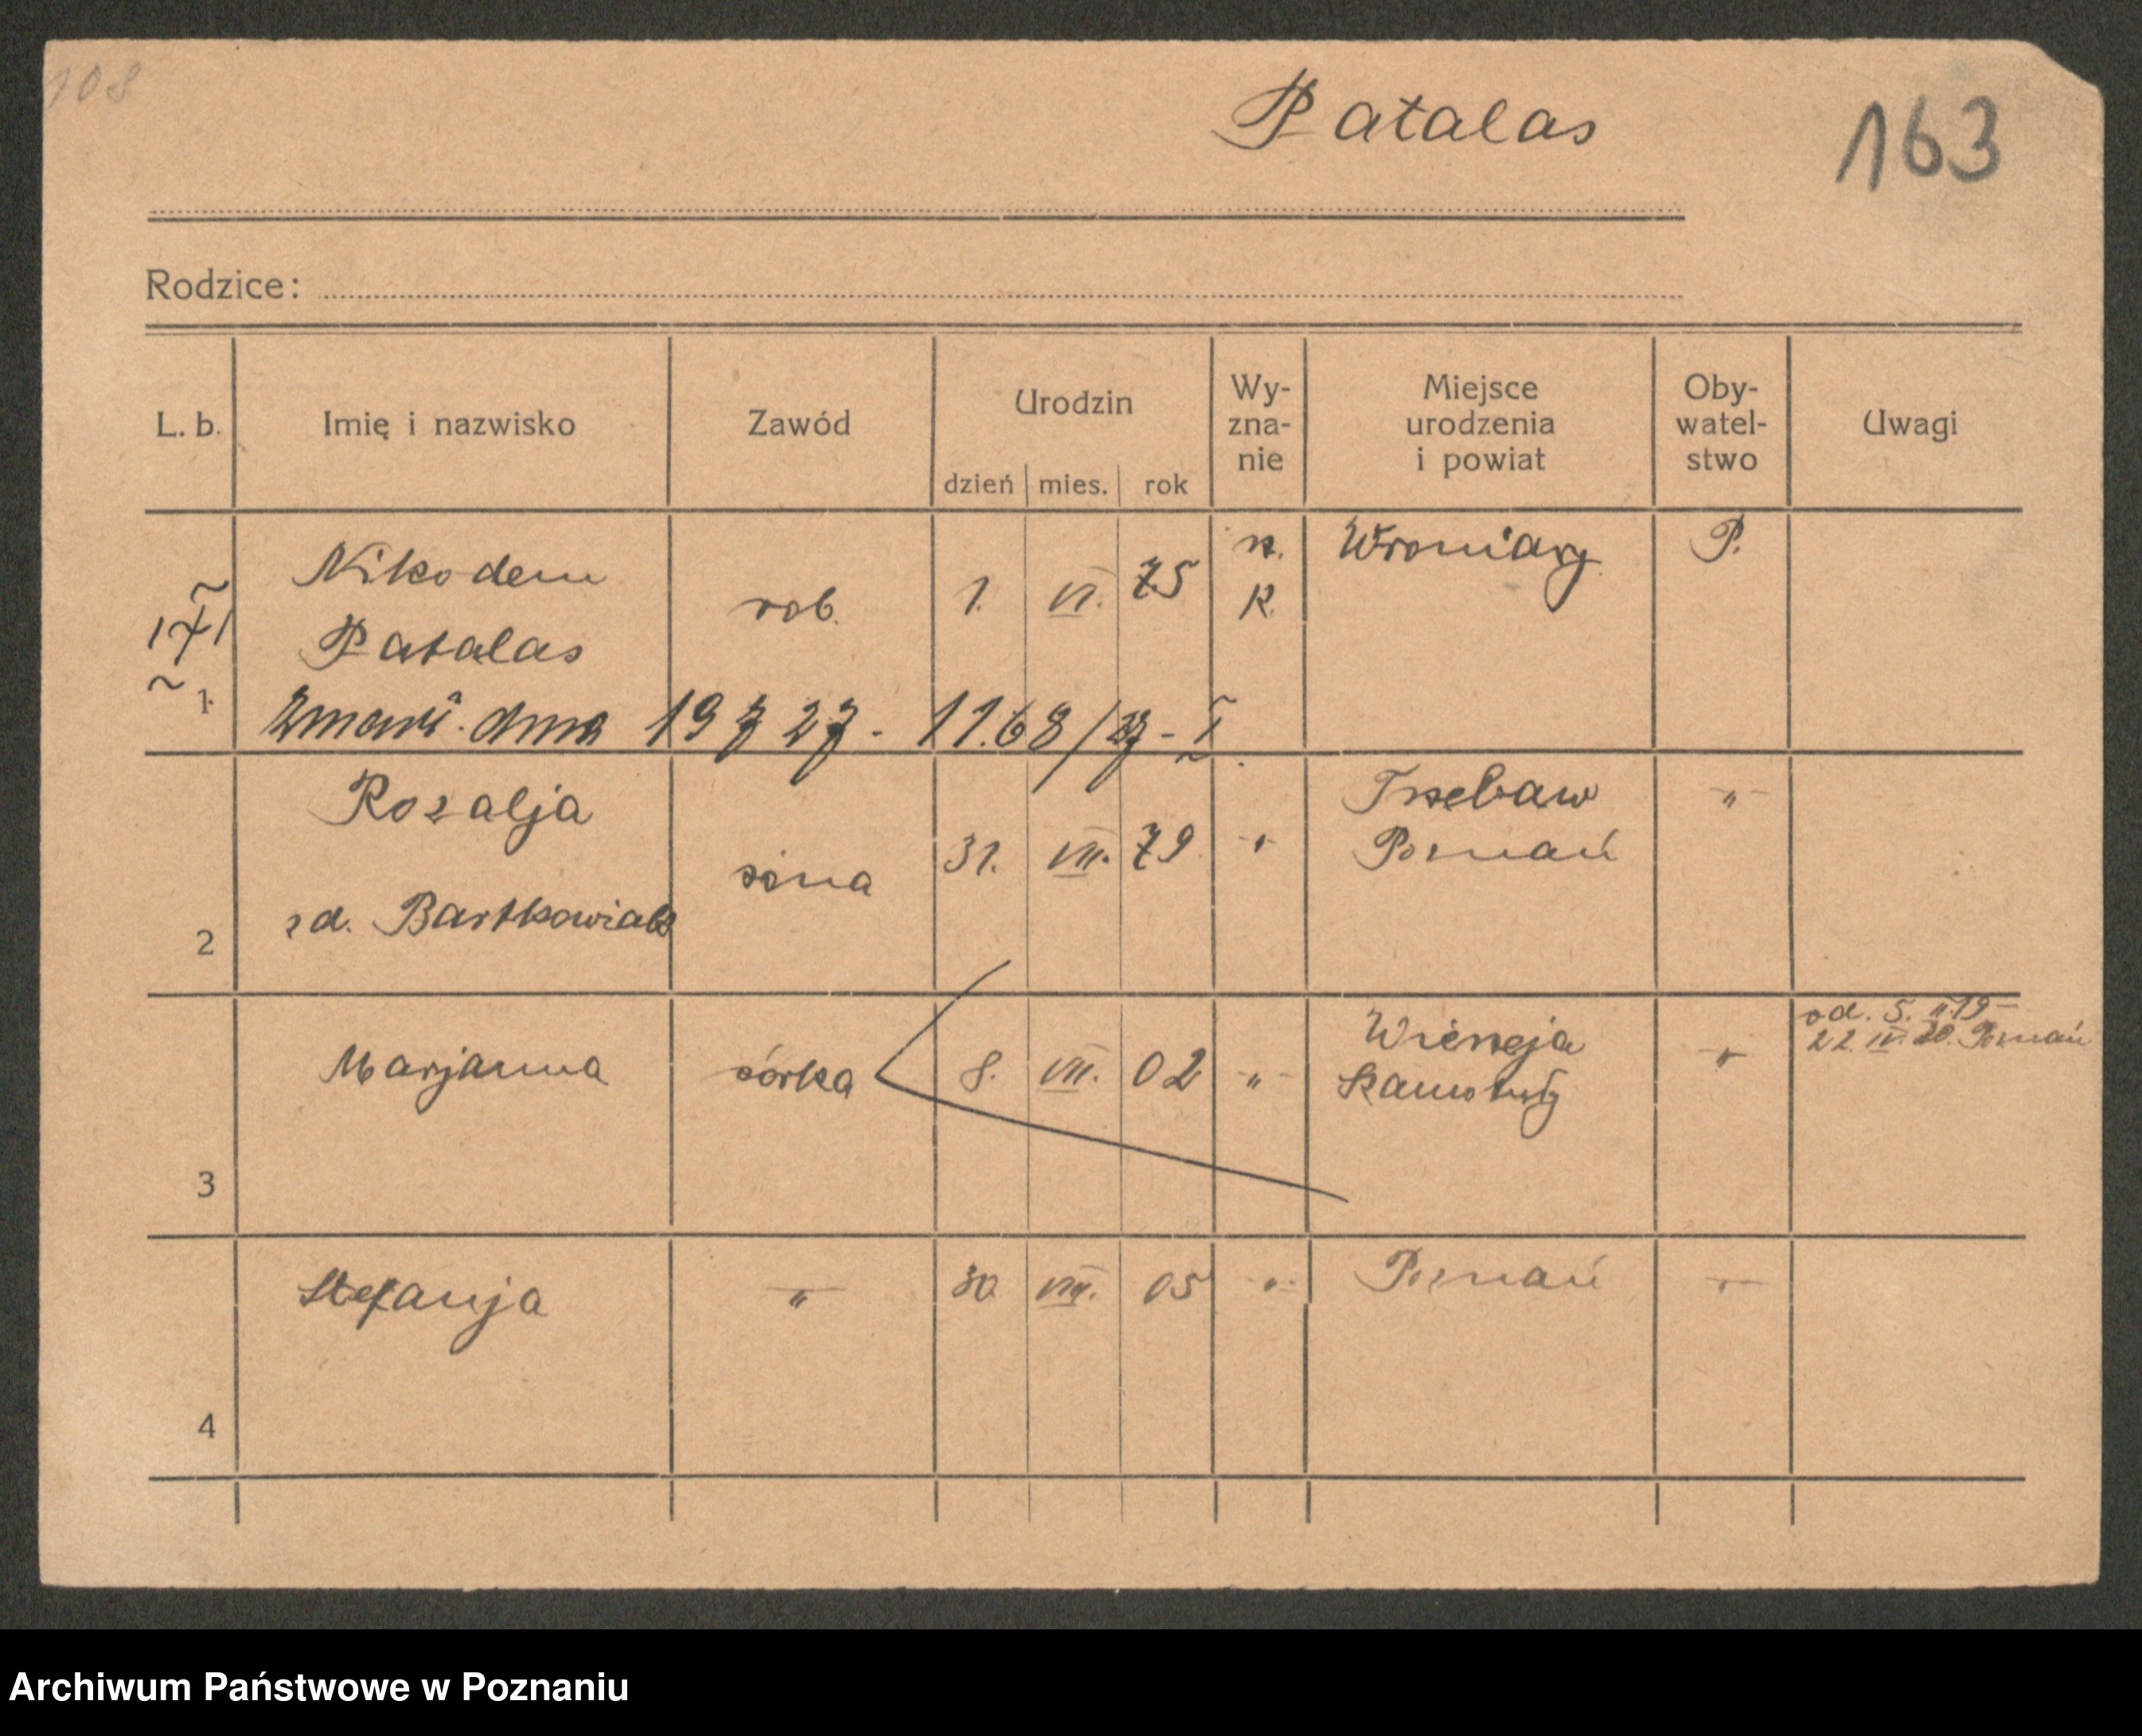 108
Patalas
163
Rodzice:
L. b. Imię i nazwisko Zawód Urodzin Wy- Miejsce Oby- Uwagi
zna- urodzenia watel-
nie i powiat stwo
dzień mies. rok
Nikodem rob. 1. VI. 75 rz. K. Wroniawy P.
Patalas
1
dnia 19 7 27 -
Rozalja żona 31. VII. 79 " Trzebaw "
Poznań
2 zd. Bartkowiak
Marjanna córka 8. VII. 02 " "
od. 5. II. 19 -
22. IV. 20. Poznań
3
Stefanja " 30 VIII. 05 " Poznań "
4
Archiwum Państwowe w Poznaniu